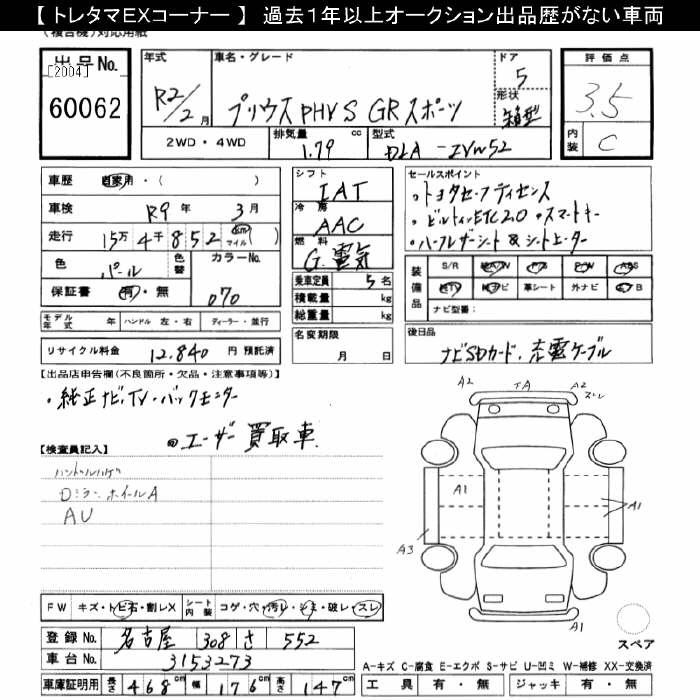 【 トレタマEXコーナー 】 過去1年以上オークション出品歴がない車両
出品No.
[2004]
60062
年式
R2/2月
車名・グレード
プリウスPHV S GRスポーツ
ドア
5
形状
箱型
評価点
3.5
内装
C
2WD・4WD
排気量
cc
1.79
型式
DLA-ZVW52
車歴 自家用・( )
車検 R9年 3月
走行 15万4千852 (km マイル)
色 パール
色替
カラーNo.
070
保証書 有・無
シフト
IAT
冷房
AAC
燃料
G.電気
乗車定員 5名
積載量 kg
総重量 kg
名変期限
月 日
セールスポイント
・トヨタセーフティセンス
・ビルトインETC2.0 ・スマートキー
・ハーフレザーシート & シートヒーター
装備品
S/R AA/W P/S P/W ABS
TV ナビ 革シート 外ナビ A/B
ナビ型番:
モデル年式 年 ハンドル 左・右 ディーラー・並行
リサイクル料金 12,840 円 預託済
後日品
ナビSDカード、充電ケーブル
【出品店申告欄(不良箇所・欠品・注意事項等)】
・純正ナビ、TV・バックモニター
・ユーザー買取車
【検査員記入】
ハンドルハゲ
ホイールA
AU
A2 TA A2
ズレ
A1
A1
A3
A1
スペア
FW キズ・トビ石・割レX シート内装 コゲ・穴・汚レ・シミ・破レ・スレ
登録No. 名古屋 308 さ 552
車台No. 3153273
車庫証明用 長さ 468cm 幅 176cm 高さ 147cm
A-キズ C-腐食 E-エクボ S-サビ U-凹ミ W-補修 XX-交換済
工具 有・無 ジャッキ 有・無